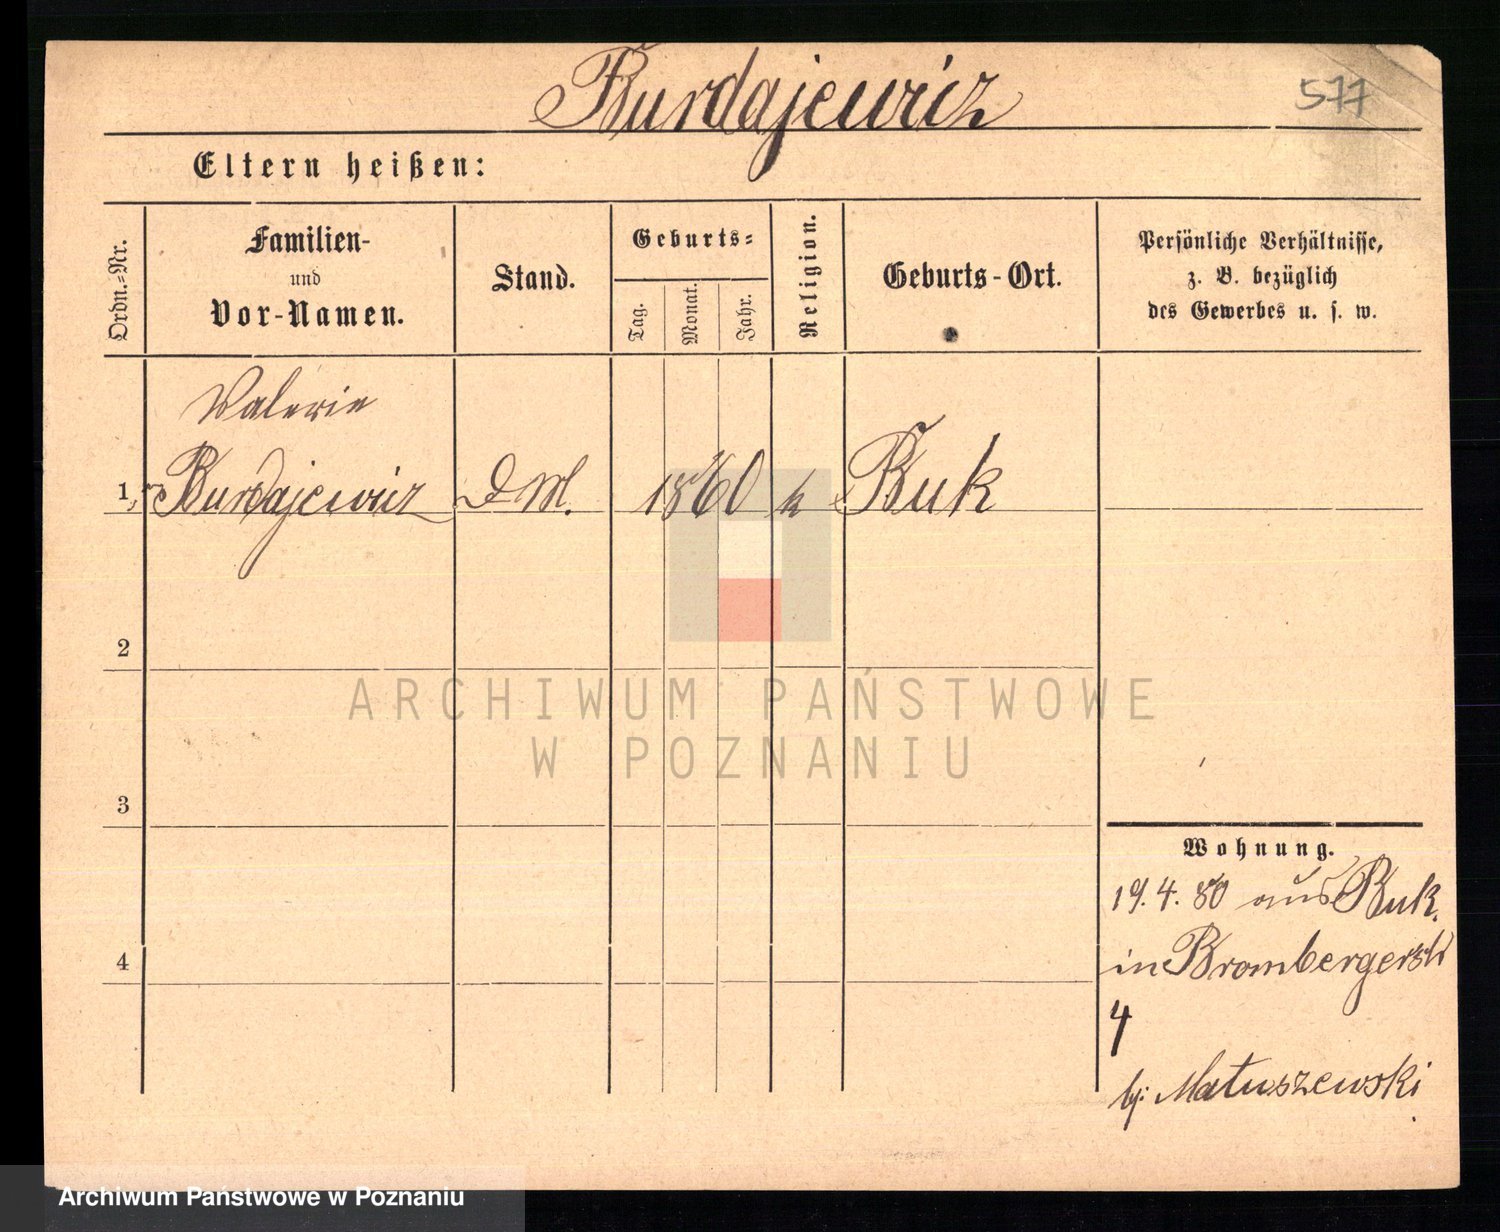 Burdajewicz
577
Eltern heißen:
Ordn.=Nr.
Familien-
und
Vor-Namen.
Stand.
Geburts=
Tag.
Monat.
Jahr.
Religion.
Geburts-Ort.
Persönliche Verhältnisse,
z. B. bezüglich
des Gewerbes u. s. w.
Valerie
1, Burdajewicz D M. 1860 k Buk
2
3
4
Wohnung.
19. 4. 80 aus Buk.
in Brombergerstr
4
bj: Matuszewski
ARCHIWUM PAŃSTWOWE
W POZNANIU
Archiwum Państwowe w Poznaniu